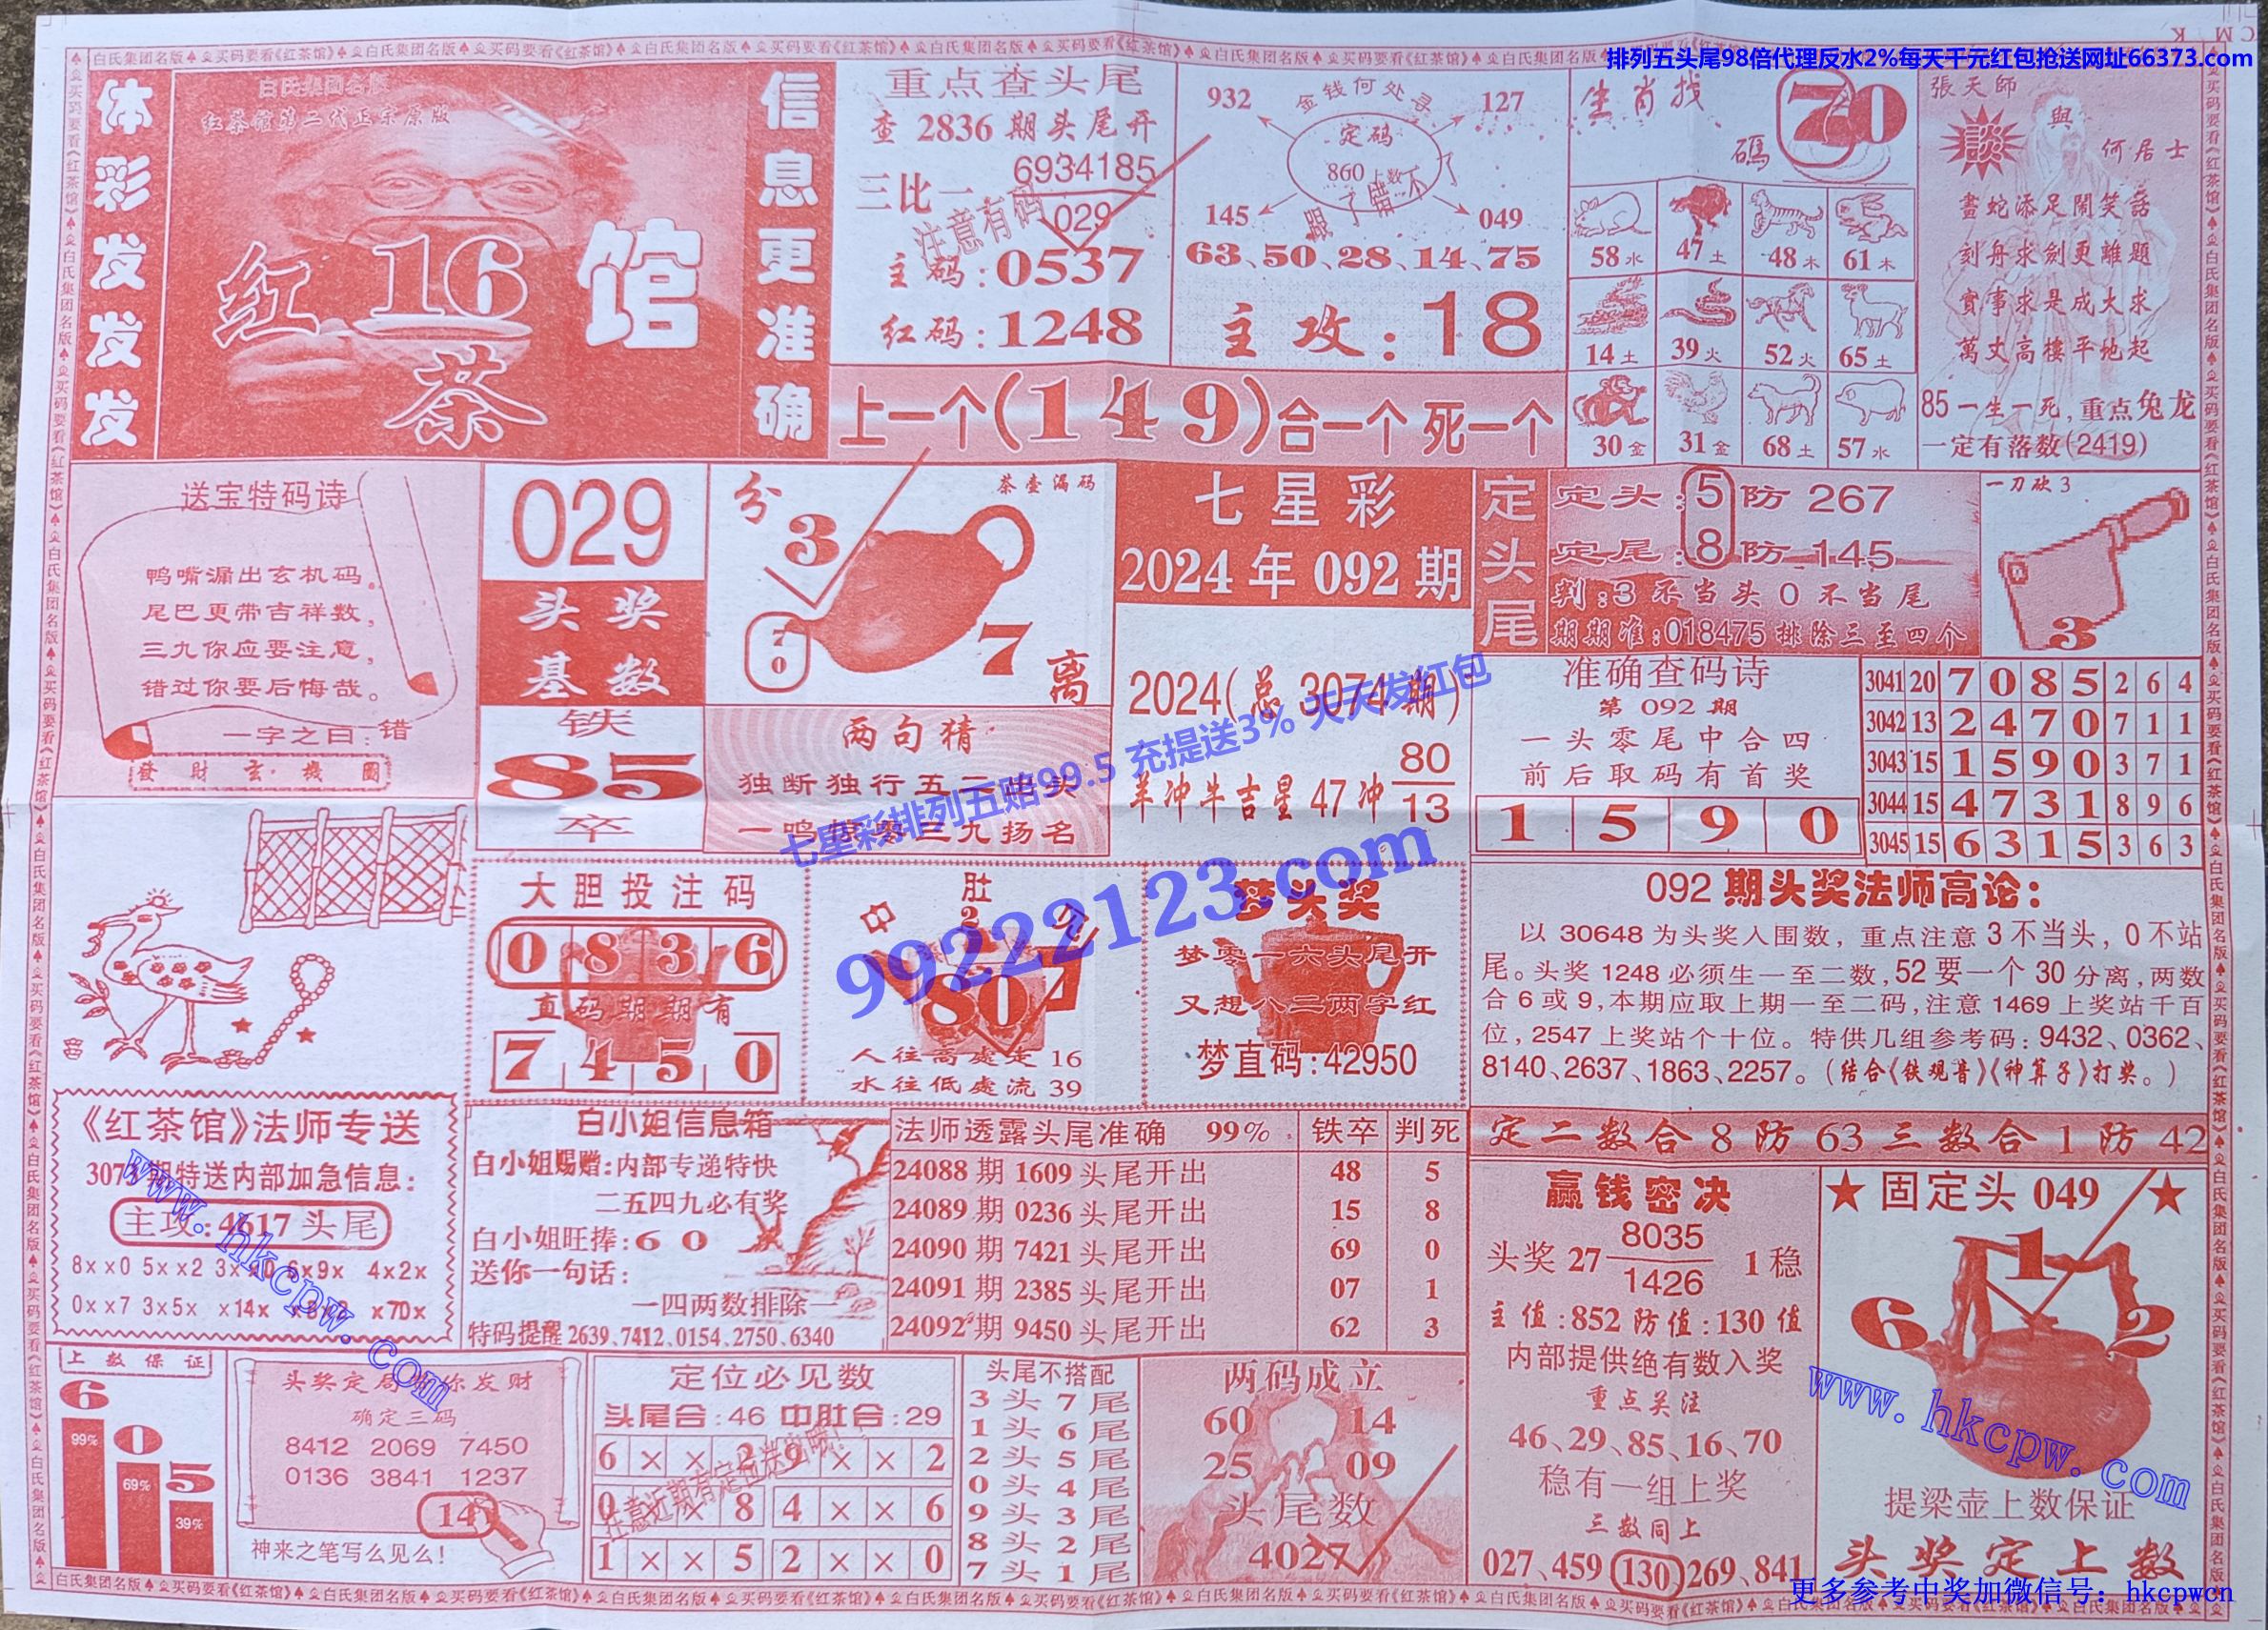 排列五头尾98倍代理反水2%每天千元红包抢送网址66373.com
白氏集团名版♠买码要看《红茶馆》
体彩发发发
白氏集团名版
红茶馆第二代正宗原版
红 16 馆
茶
信息更准确
重点查头尾
查 2836 期头尾开
三比一 6934185
029
注意有码
主码:0537
红码:1248
932 金钱何处寻 127
定码
860上数
145 049
跟了错不了
63、50、28、14、75
主攻:18
上一个(149)合一个 死一个
生肖找
码 70
58水 47土 48木 61木
14土 39火 52火 65土
30金 31金 68土 57水
張天師
談 與
何居士
畫蛇添足鬧笑話
刻舟求劍更離題
實事求是成大求
萬丈高樓平地起
85一生一死,重点兔龙
一定有落数(2419)
送宝特码诗
鸭嘴漏出玄机码。
尾巴更带吉祥数,
三九你应要注意,
错过你要后悔哉。
一字之曰:错
發財玄機圖
029
头奖
基数
铁
85
卒
分 茶壶漏码
3
70
6
7
离
两句猜
独断独行五二出头
一鸣惊零三九扬名
七星彩
2024年092期
2024(总3074期)
羊冲牛吉星 47冲 80
13
定头尾
定头:5防267
定尾:8防145
判:3不当头0不当尾
期期准:018475排除三至四个
一刀砍3
3
准确查码诗
第092期
一头零尾中合四
前后取码有首奖
1 5 9 0
3041 20 7 0 8 5 2 6 4
3042 13 2 4 7 0 7 1 1
3043 15 1 5 9 0 3 7 1
3044 15 4 7 3 1 8 9 6
3045 15 6 3 1 5 3 6 3
七星彩排列五赔99.5 充提送3% 天天发红包
99222123.com
大胆投注码
0 8 3 6
直码期期有
7 4 5 0
中 肚 见
2
80
人往高處走 16
水往低處流 39
梦头奖
梦零一六头尾开
又想八二两字红
梦直码:42950
092期头奖法师高论:
以30648为头奖入围数,重点注意3不当头,0不站
尾。头奖1248必须生一至二数,52要一个30分离,两数
合6或9,本期应取上期一至二码,注意1469上奖站千百
位,2547上奖站个十位。特供几组参考码:9432、0362、
8140、2637、1863、2257。(结合《铁观音》《神算子》打奖。)
《红茶馆》法师专送
期特送内部加急信息:
主攻:4617头尾
8xx0 5xx2 6x9x 4x2x
0xx7 3x5x x14x x70x
白小姐信息箱
白小姐赐赠:内部专递特快
二五四九必有奖
白小姐旺捧:6 0
送你一句话:
一四两数排除一
特码提醒2639,7412,0154,2750,6340
法师透露头尾准确 99% 铁卒 判死
24088期1609头尾开出 48 5
24089期0236头尾开出 15 8
24090期7421头尾开出 69 0
24091期2385头尾开出 07 1
24092期9450头尾开出 62 3
定二数合8防63三数合1防42
赢钱密决
头奖27 8035 1稳
1426
主值:852防值:130值
内部提供绝有数入奖
重点关注
46、29、85、16、70
稳有一组上奖
三数同上
027、459 130 269、841
★固定头049★
1
6 2
提梁壶上数保证
头奖定上数
上数保证
6
99%
0
69%
5
39%
头奖定局 你发财
确定三码
8412 2069 7450
0136 3841 1237
14
神来之笔写么见么!
定位必见数
头尾合:46 中肚合:29
6 × × 2 9 × × 2
0 × × 8 4 × × 6
1 × × 5 2 × × 0
头尾不搭配
3头7尾
1头6尾
2头5尾
0头4尾
9头3尾
8头2尾
7头1尾
两码成立
60 14
25 09
头尾数
4027
www.hkcpw.com
www.hkcpw.com
更多参考中奖加微信号：hkcpwcn